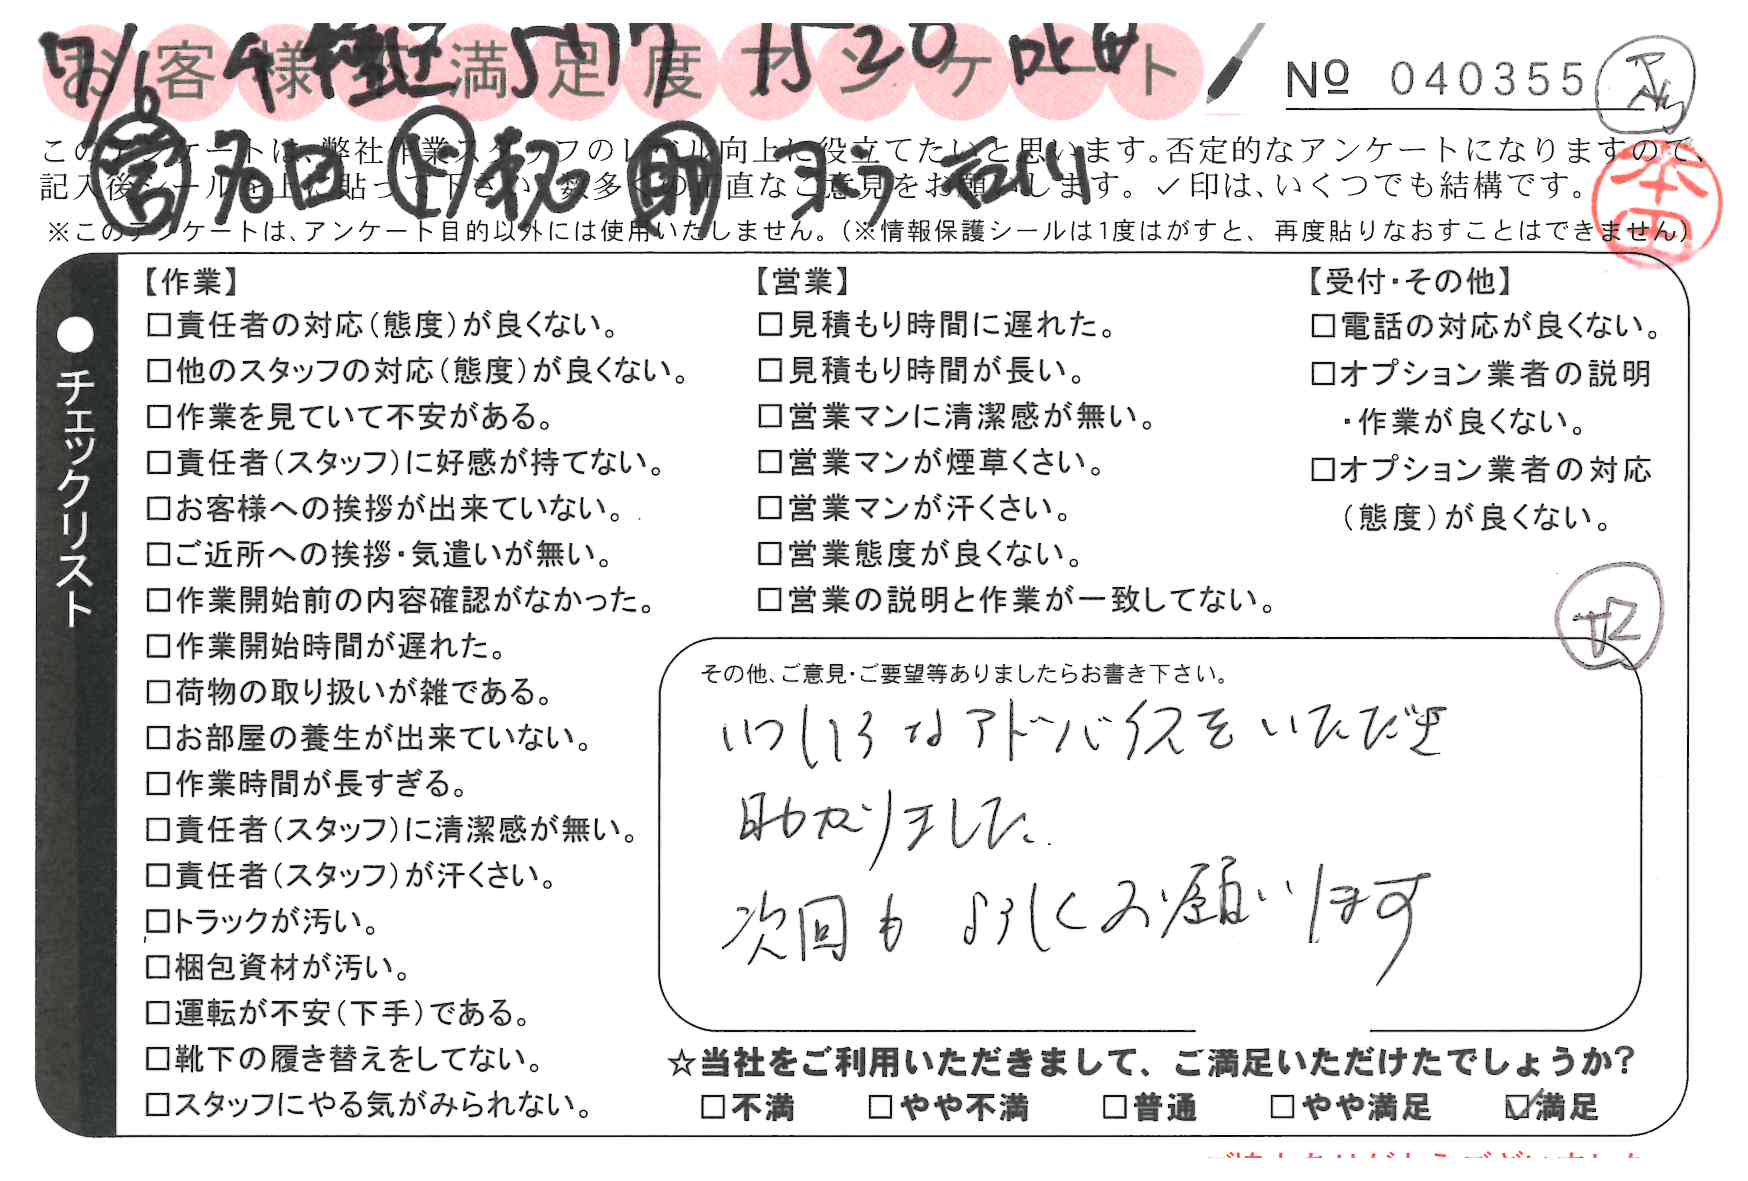 お客様不満足度アンケート
№ 040355
このアンケートは、弊社作業スタッフのレベル向上に役立てたいと思います。否定的なアンケートになりますので、
記入後シールを上に貼って下さい。数多くの正直なご意見をお願いします。✓印は、いくつでも結構です。
※このアンケートは、アンケート目的以外には使用いたしません。(※情報保護シールは1度はがすと、再度貼りなおすことはできません)
本田
●チェックリスト
【作業】
□責任者の対応(態度)が良くない。
□他のスタッフの対応(態度)が良くない。
□作業を見ていて不安がある。
□責任者(スタッフ)に好感が持てない。
□お客様への挨拶が出来ていない。
□ご近所への挨拶・気遣いが無い。
□作業開始前の内容確認がなかった。
□作業開始時間が遅れた。
□荷物の取り扱いが雑である。
□お部屋の養生が出来ていない。
□作業時間が長すぎる。
□責任者(スタッフ)に清潔感が無い。
□責任者(スタッフ)が汗くさい。
□トラックが汚い。
□梱包資材が汚い。
□運転が不安(下手)である。
□靴下の履き替えをしてない。
□スタッフにやる気がみられない。
【営業】
□見積もり時間に遅れた。
□見積もり時間が長い。
□営業マンに清潔感が無い。
□営業マンが煙草くさい。
□営業マンが汗くさい。
□営業態度が良くない。
□営業の説明と作業が一致してない。
【受付・その他】
□電話の対応が良くない。
□オプション業者の説明
・作業が良くない。
□オプション業者の対応
(態度)が良くない。
その他、ご意見・ご要望等ありましたらお書き下さい。
いろいろなアドバイスをいただき
助かりました。
次回もよろしくお願いします
☆当社をご利用いただきまして、ご満足いただけたでしょうか?
□不満 □やや不満 □普通 □やや満足 ☑満足